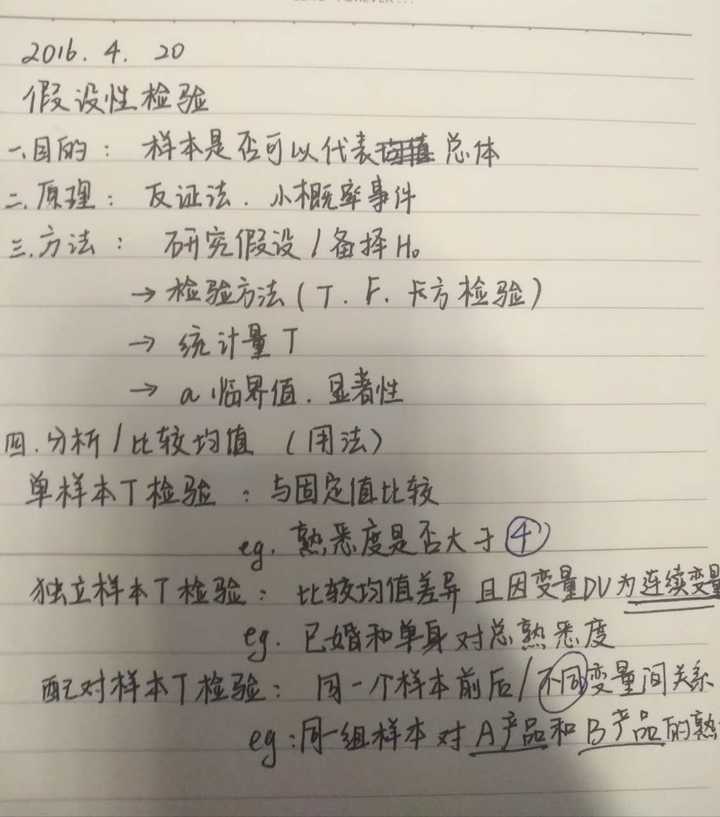 2016. 4. 20
假设性检验
一.目的： 样本是否可以代表总体
二.原理： 反证法. 小概率事件
三.方法： 研究假设/备择H₀
→ 检验方法(T. F. 卡方检验)
→ 统计量T
→ a 临界值. 显著性
四.分析/比较均值 (用法)
单样本T检验：与固定值比较
eg. 熟悉度是否大于④
独立样本T检验：比较均值差异 且因变量DV为连续变量
eg. 已婚和单身对总熟悉度
配对样本T检验：同一个样本前后/不同变量间关系
eg:同一组样本对A产品和B产品的熟